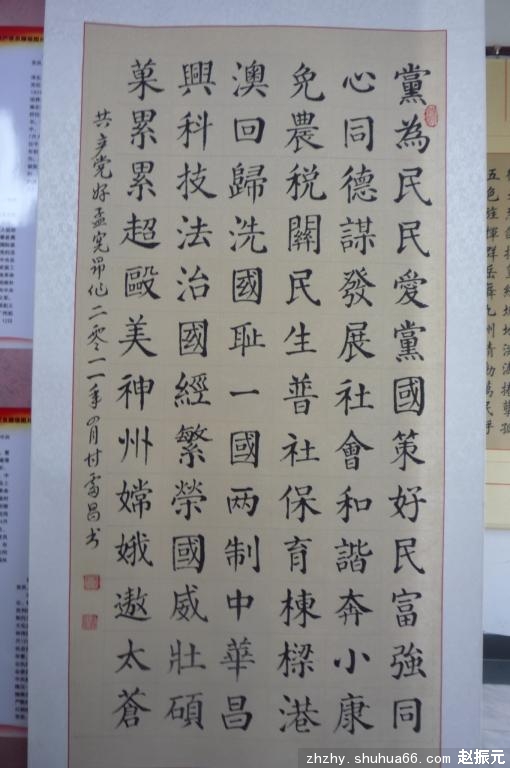 黨為民民愛黨國策好民富強同
心同德謀發展社會和諧奔小康
免農税關民生普社保育棟樑港
澳回歸洗國耻一國两制中華昌
興科技法治國經繁榮國威壯碩
菓累累超毆美神州嫦娥遨太蒼
共产党好孟宪昂作二零一一年四月付雷昌书
五色旌揮群岳舞九州情動萬民呼
zhzhy.shuhua66.com 赵振元